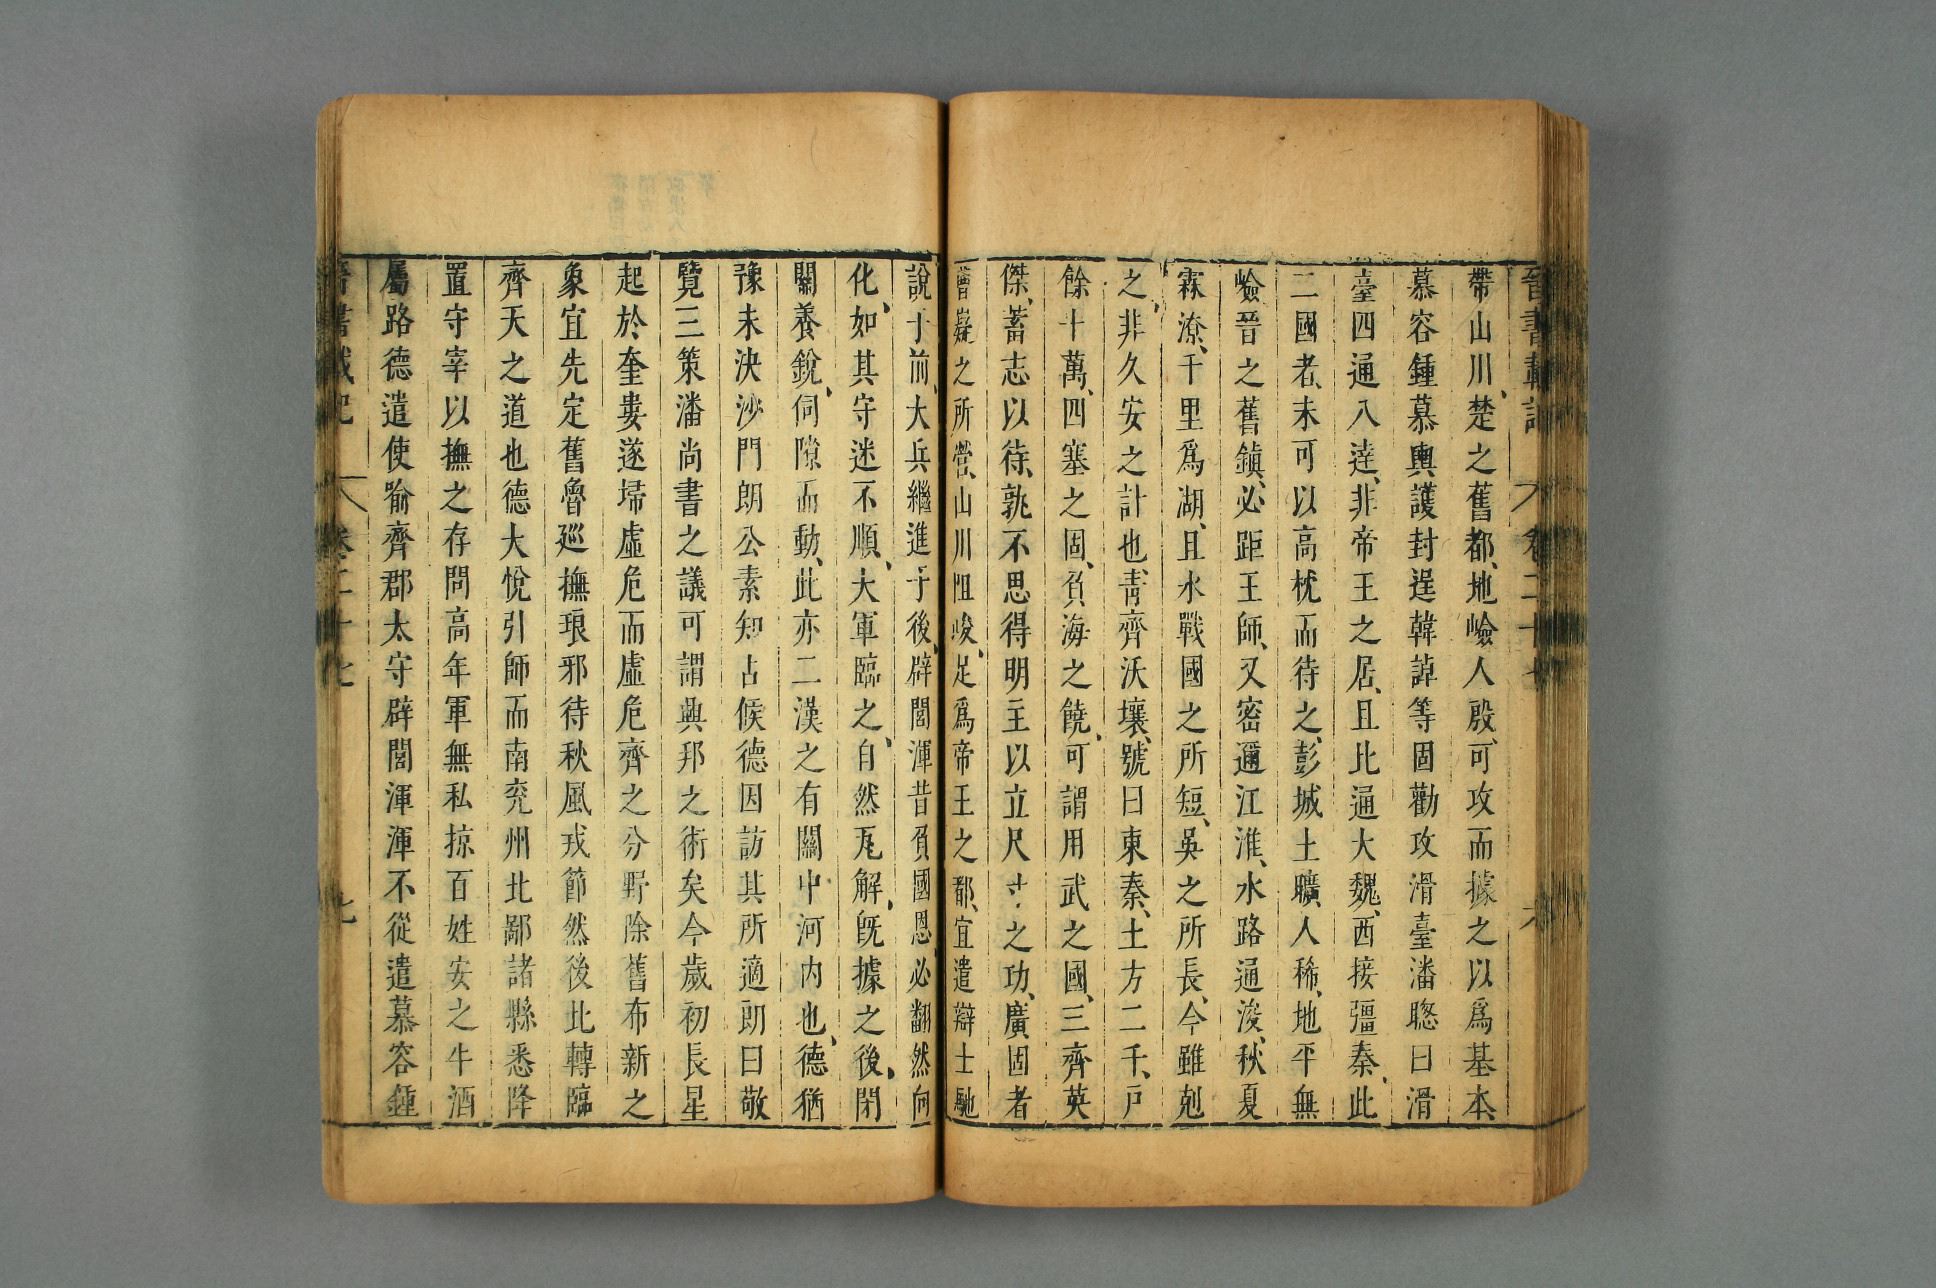 晉書載記 卷二十七 六
帶山川、楚之舊都、地嶮人殷、可攻而據之以爲基本、
慕容鍾慕輿護封逞韓𧨳等固勸攻滑臺潘聰曰滑
臺四通八達、非帝王之居、且北通大魏、西接彊秦、此
二國者、未可以高枕而待之、彭城土曠、人稀、地平無
嶮晉之舊鎮、必距王師、又密邇江淮、水路通浚、秋夏
霖潦、千里爲湖、且水戰國之所短、吳之所長、今雖剋
之、非久安之計也、青齊沃壤、號曰東秦、土方二千、戶
餘十萬、四塞之固、負海之饒、可謂用武之國、三齊英
傑、蓄志以待、孰不思得明主以立尺寸之功、廣固者
曹嶷之所營、山川阻峻、足爲帝王之都、宜遣辯士馳
說于前、大兵繼進于後、辟閭渾昔負國恩、必翻然向
化、如其守迷不順、大軍臨之、自然瓦解、旣據之後、閉
關養銳、伺隙而動、此亦二漢之有關中河內也、德猶
豫未決沙門朗公素知占候德因訪其所適朗曰敬
覽三策潘尚書之議可謂興邦之術矣今歲初長星
起於奎婁遂掃虛危而虛危齊之分野除舊布新之
象宜先定舊魯巡撫琅邪待秋風戒節然後北轉臨
齊天之道也德大悅引師而南兖州北鄙諸縣悉降
置守宰以撫之存問高年軍無私掠百姓安之牛酒
屬路德遣使喻齊郡太守辟閭渾渾不從遣慕容鍾
晉書載記 卷二十七 七